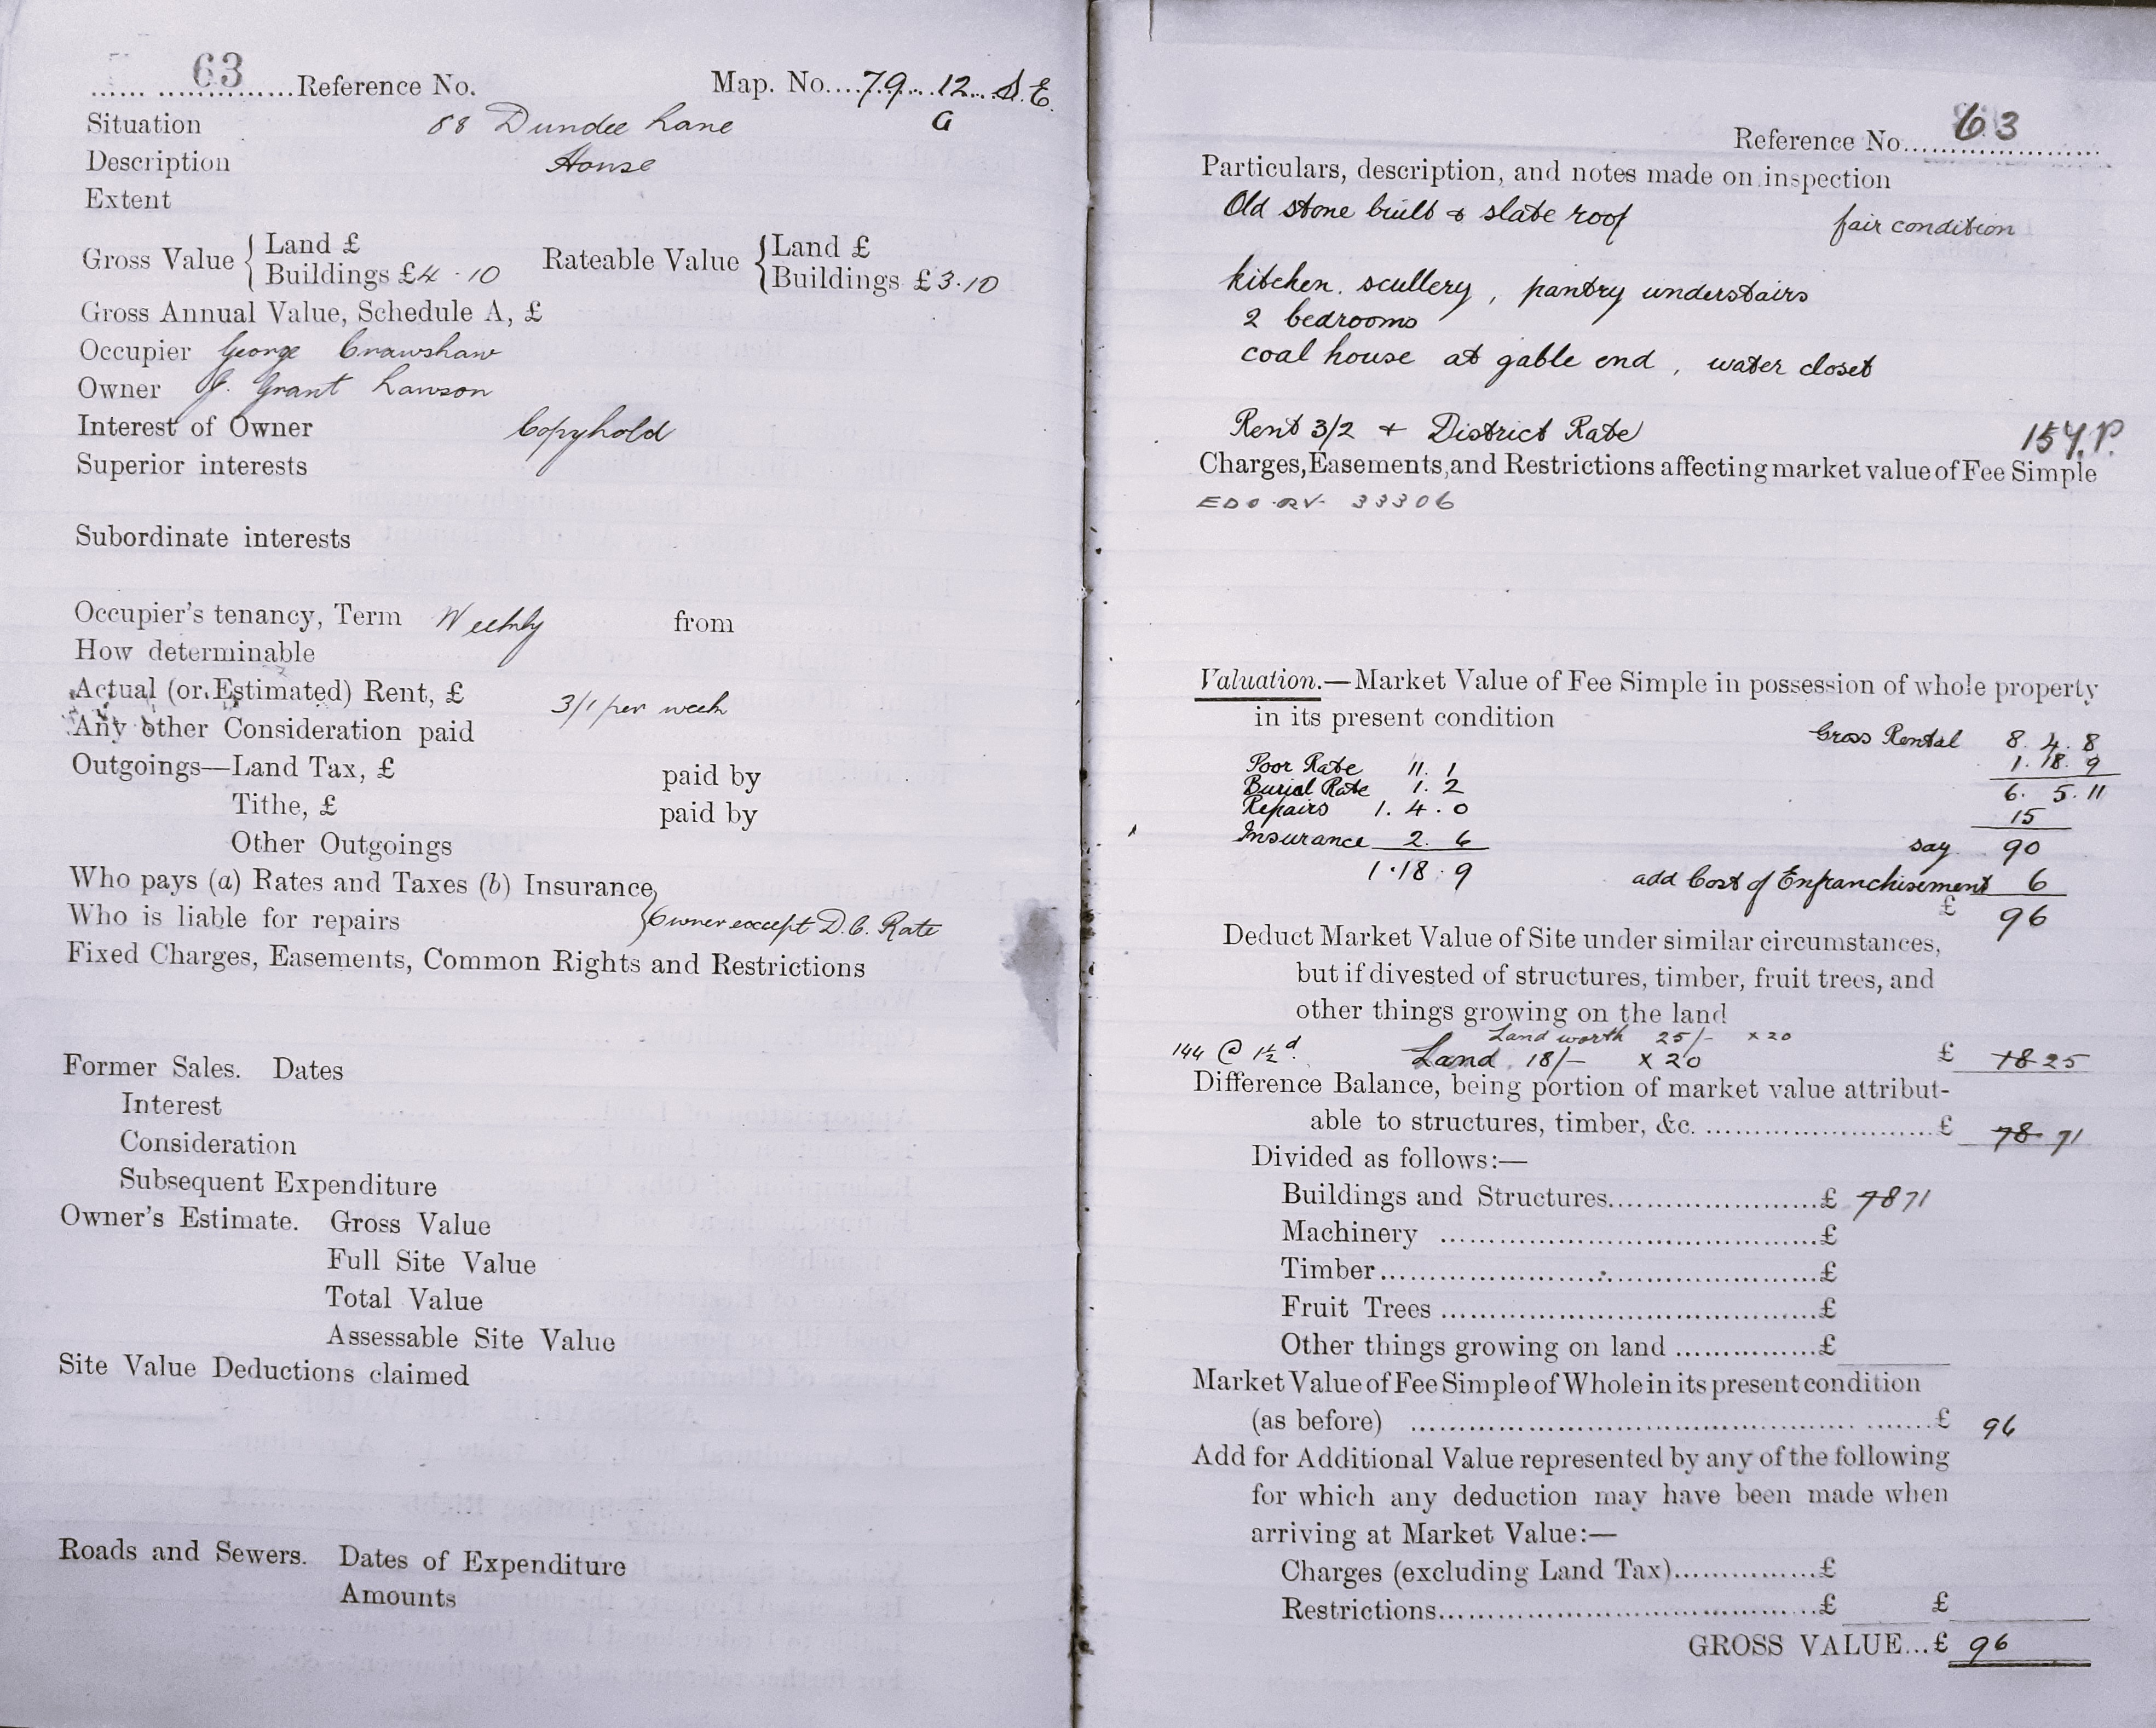 63 Reference No. Map. No....79...12...S.E.
Situation 88 Dundee Lane a
Description House
Extent
Gross Value { Land £ Rateable Value { Land £
Buildings £4 . 10 Buildings £3.10
Gross Annual Value, Schedule A, £
Occupier George Crawshaw
Owner J. Grant Lawson
Interest of Owner Copyhold
Superior interests
Subordinate interests
Occupier's tenancy, Term Weekly from
How determinable
Actual (or Estimated) Rent, £ 3/1 per week
Any other Consideration paid
Outgoings—Land Tax, £ paid by
Tithe, £ paid by
Other Outgoings
Who pays (a) Rates and Taxes (b) Insurance
Who is liable for repairs } Owner except D.C. Rate
Fixed Charges, Easements, Common Rights and Restrictions
Former Sales. Dates
Interest
Consideration
Subsequent Expenditure
Owner's Estimate. Gross Value
Full Site Value
Total Value
Assessable Site Value
Site Value Deductions claimed
Roads and Sewers. Dates of Expenditure
Amounts
Reference No. 63
Particulars, description, and notes made on inspection
Old stone built & slate roof fair condition
kitchen. scullery, pantry understairs
2 bedrooms
coal house at gable end, water closet
Rent 3/2 + District Rate 15 Y.P.
Charges, Easements, and Restrictions affecting market value of Fee Simple
33306
Valuation.—Market Value of Fee Simple in possession of whole property
in its present condition
Gross Rental 8. 4. 8
Poor Rate 11. 1 1. 18. 9
Burial Rate 1. 2 6. 5. 11
Repairs 1. 4. 0 15
Insurance 2. 6 say 90
1. 18. 9 add Cost of Enfranchisement 6
£ 96
Deduct Market Value of Site under similar circumstances,
but if divested of structures, timber, fruit trees, and
other things growing on the land
Land worth 25/- x 20
144 @ 1½d. Land 18/- x 20 £ 18 25
Difference Balance, being portion of market value attribut-
able to structures, timber, &c. ........................£ 78 71
Divided as follows:—
Buildings and Structures......................£ 78 71
Machinery ......................................£
Timber............................................£
Fruit Trees ......................................£
Other things growing on land ...............£
Market Value of Fee Simple of Whole in its present condition
(as before) ......................................................£ 96
Add for Additional Value represented by any of the following
for which any deduction may have been made when
arriving at Market Value:—
Charges (excluding Land Tax)...............£
Restrictions........................................£ £
GROSS VALUE...£ 96